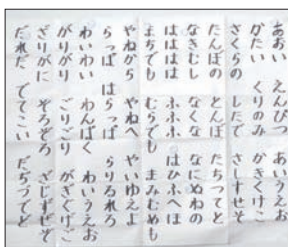 あおい えんぴつ あいうえお
かたい くりのみ かきくけこ
さくらの したで さしすせそ
たんぼの とんぼ たちつてと
なきむし なくな なにぬねの
はははは ふふふ はひふへほ
まちでも むらでも まみむめも
やねから やねへ やいゆえよ
らっぱ はらっぱ らりるれろ
わいわい わんぱく わいうえお
がりがり ごりごり がぎぐげご
ざりがに ぞろぞろ ざじずぜぞ
だれだ でてこい だぢづでど